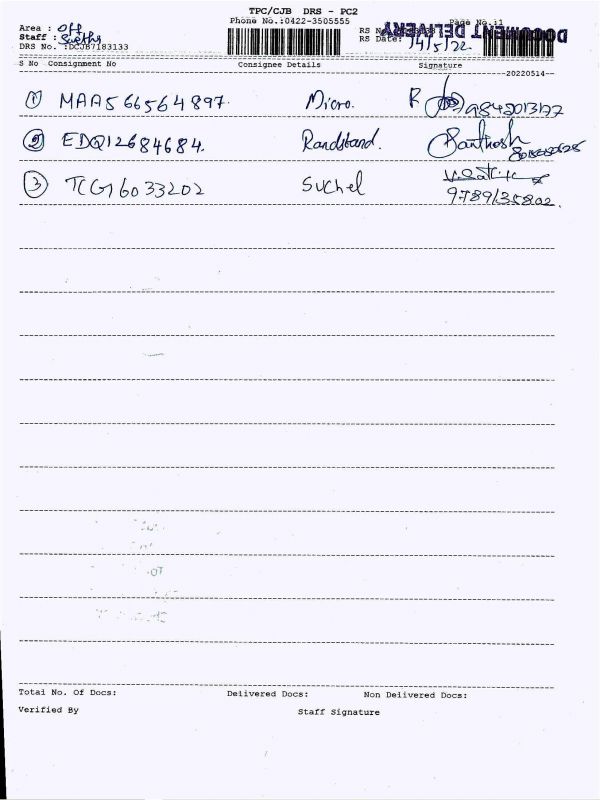 TPC/CJB DRS - PC2
Phone No.:0422-3505555
Page No.:1
Area : Off
Staff :
DRS No. :DCJB7183133
DOCUMENT DELIVERY
RS Date: 14/5/22
S No Consignment No Consignee Details Signature
20220514
1 MAA566564897. Micro. R 9842013177
2 EDQ12684684. Randstand. Santhosh
3 TCG16033202 Suchel
9789135802.
Total No. Of Docs: Delivered Docs: Non Delivered Docs:
Verified By Staff Signature